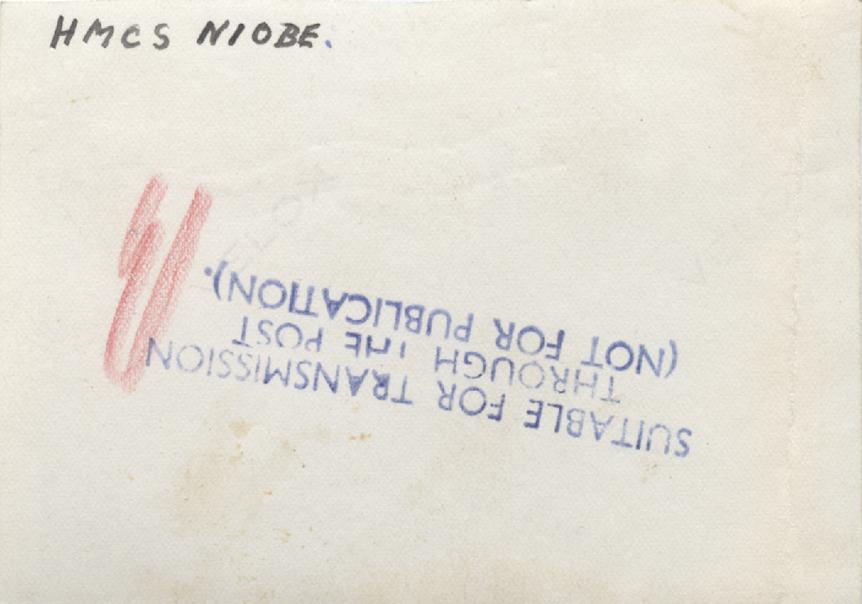 HMCS NIOBE.
SUITABLE FOR TRANSMISSION
THROUGH THE POST
(NOT FOR PUBLICATION).